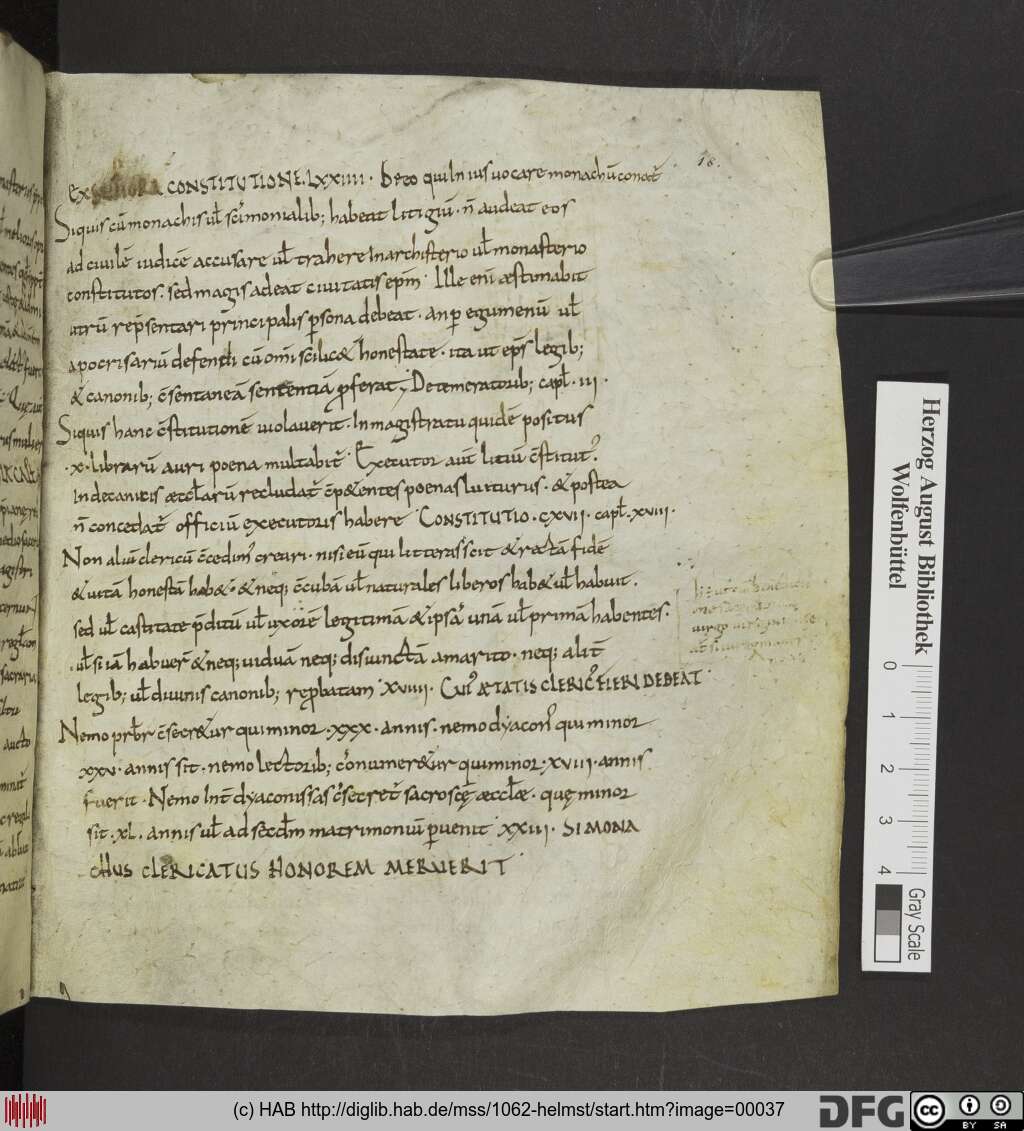 18.
CONSTITUTIONE. LXXIIII. Deeo qui In ius uocare monachū conatr̄
Siquis cū monachis ul̄ sc̄imonialib; habeat litigiū. n̄ audeat eos
ad ciuilē iudicē accusare ul̄ trahere In archisterio ul̄ monasterio
constitutos. sed magis adeat ciuitatis epm̄. Ille eni æstimabit
utrū rep̄sentari principalis p̱sona debeat. an p̱ egumenū ul̄
apocrisariū defendi cū omi scilic& honestate. ita ut ep̄s legib;
& canonib; c̄sentaneā sententiā ꝓferat; De temeratorib; capl̄. III.
Siquis hanc c̄stitutionē uiolauerit. In magistratu quidē positus
.x. librarū auri poena multabitr̄. Executor aut̄ litiū c̄stitutꝰ
In decanicis æccl̄arū recludatr̄ c̄p&entes poenas luiturus. & postea
n̄ concedatr̄ officiū executoris habere CONSTITUTIO. CXVII. capl̄. XVIII.
Non aliū clericū c̄cedimꝰ creari. nisi eū qui litteras scit & rectā fidē
& uitā honestā hab&. & neq; c̄cubā ul̄ naturales liberos hab& ul̄ habuit.
sed ul̄ castitate p̄ditū ul̄ uxorē legitimā & ipsā unā ul̄ primā habentes.
.ul̄ si iā habuer̄ & neq; uiduā neq; disiunctā a marito. neq; alit̄
legib; ul̄ diuinis canonib; reprobatam XVIIII. CUIꝰ ÆTATIS CLERICꝰ FIERI DEBEAT.
Nemo prb̄r c̄secr&ur qui minor. XXX. annis. nemo dyaconꝰ qui minor
XXV. annis sit. nemo lectorib; c̄numer&ur qui minor. XVIII. annis
fuerit. Nemo Int̄ dyaconissas c̄secretr̄ sacroscę æccl̄æ. quę minor
sit. XL. annis ul̄ ad secd̄m matrimoniū p̱uenit XXIII. SI MONA
CHUS CLERICATUS HONOREM MERUERIT
Herzog August Bibliothek
Wolfenbüttel
0 1 2 3 4
Gray Scale
(c) HAB http://diglib.hab.de/mss/1062-helmst/start.htm?image=00037
DFG
cc BY SA